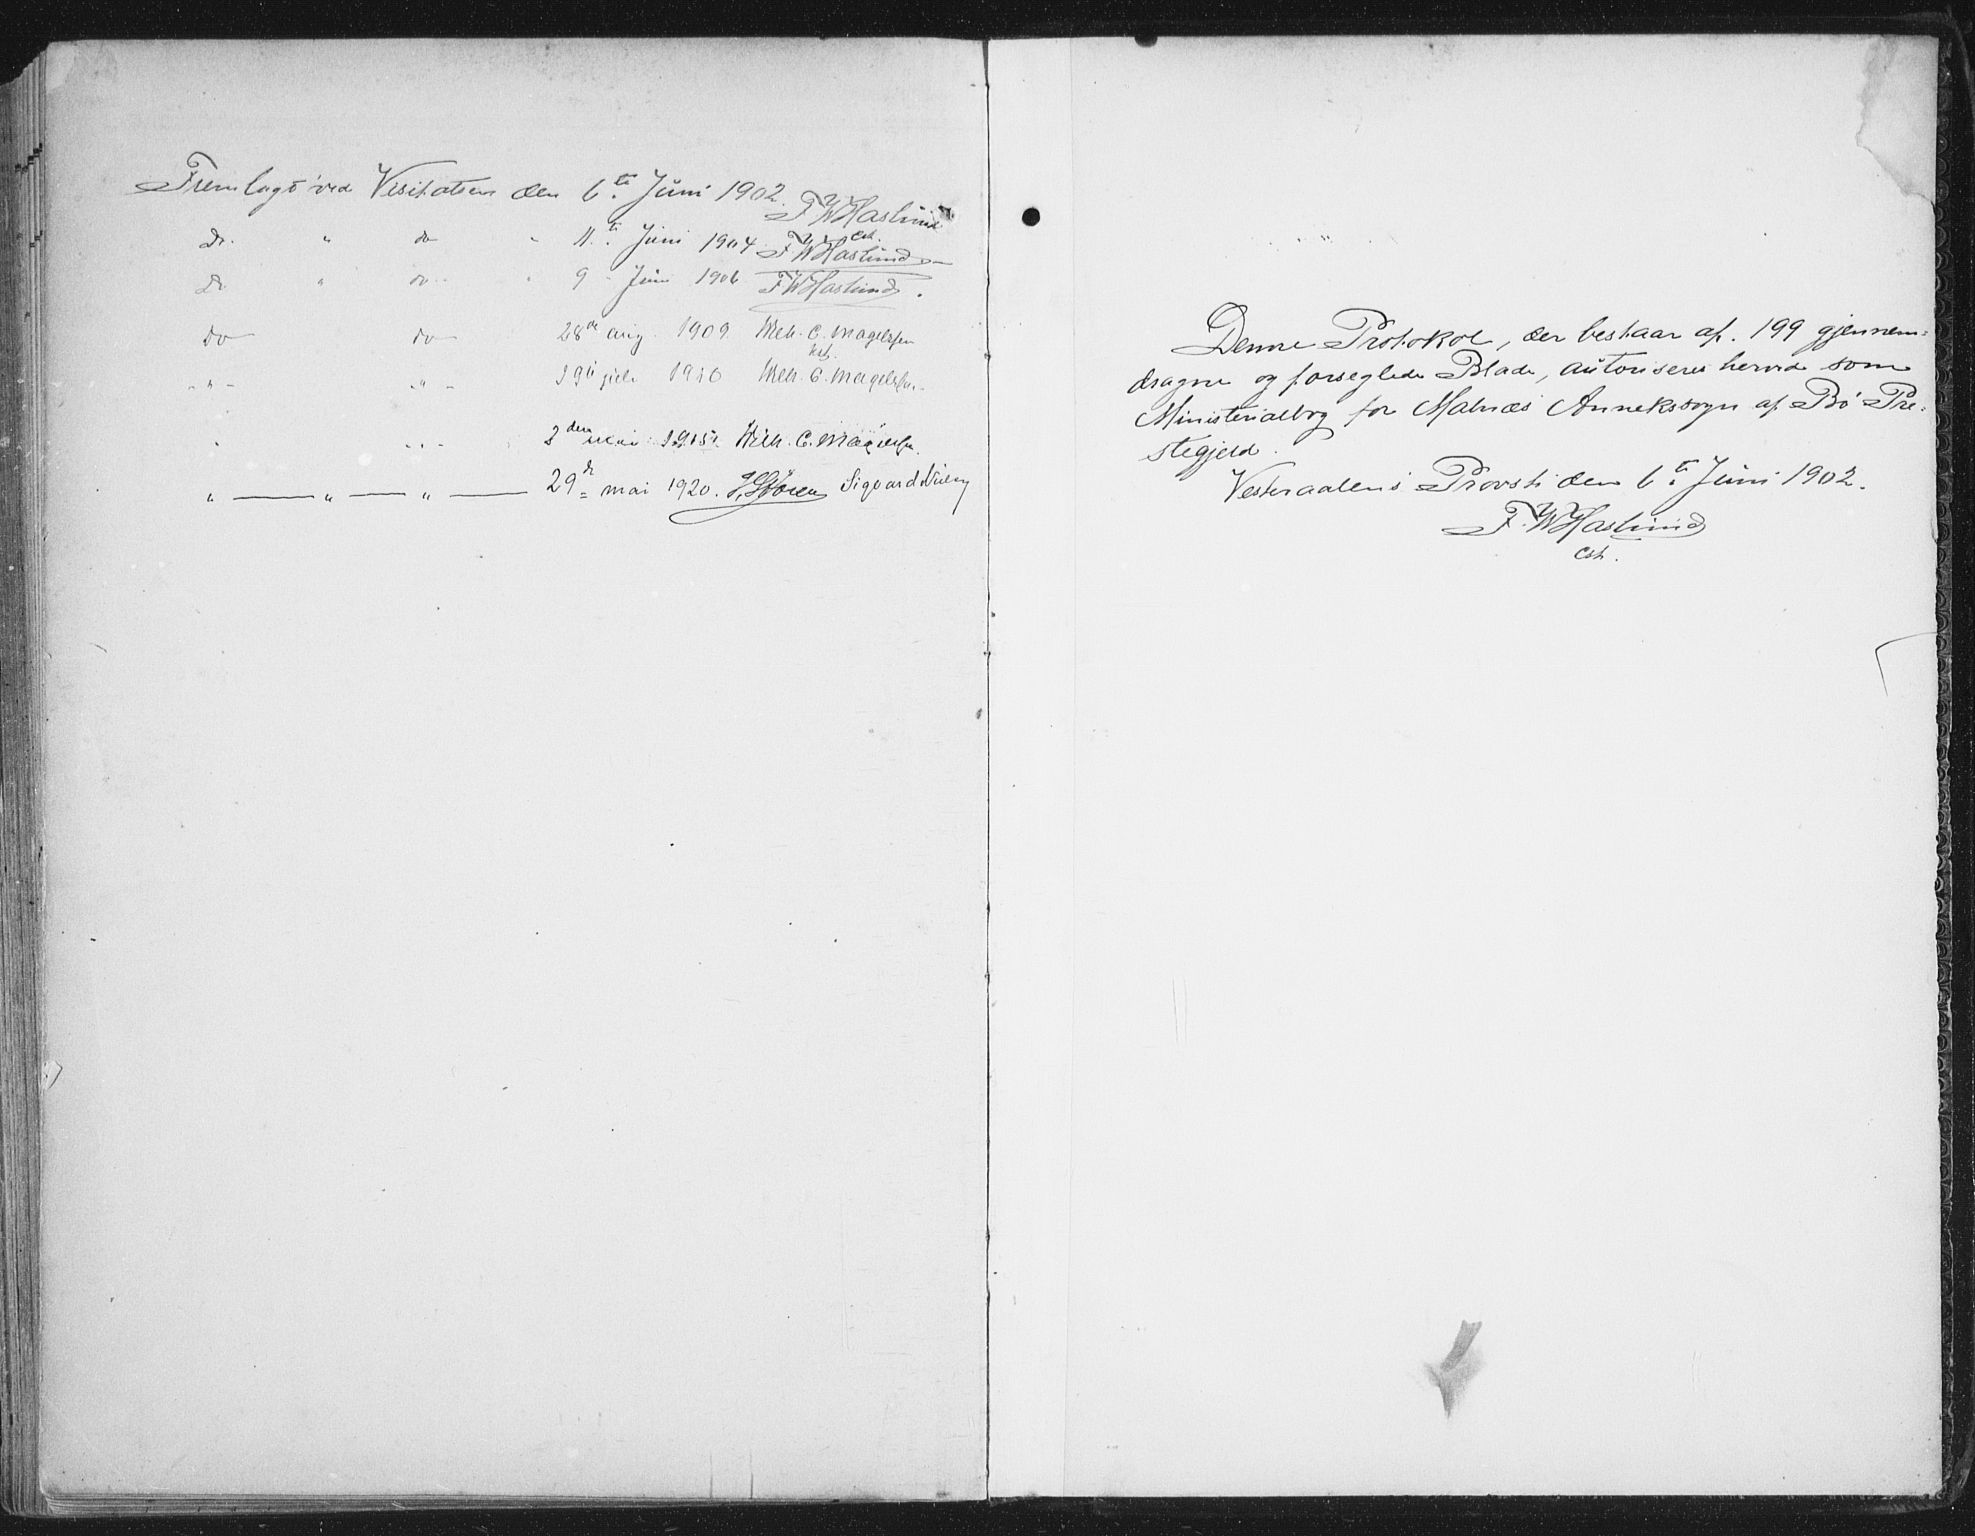 Fremlagt ved Visitatsen den 6te Juni 1902. F W Haslund
cst.
Do. " do " 11te Juni 1904 F W Haslund
Do " do " 9 Juni 1906 F W Haslund.
do do 28de aug. 1909 Wilh. C. Magelssen
kst.
- " - - " - 19de juli 1910 Wilh. C. Magelssen.
" - " - 3den mai 1915. Wilh. C. Magelssen.
" — " — " — 29de mai 1920. Sigvard
Denne Protokol, der bestaar af 199 gjennem-
dragne og forseglede Blade, autoriseres herved som
Ministerialbog for Malnæs Annekssogn af Bø Præ-
stegjeld.
Vesteraalens Provsti den 6te Juni 1902.
F. W Haslund
cst.